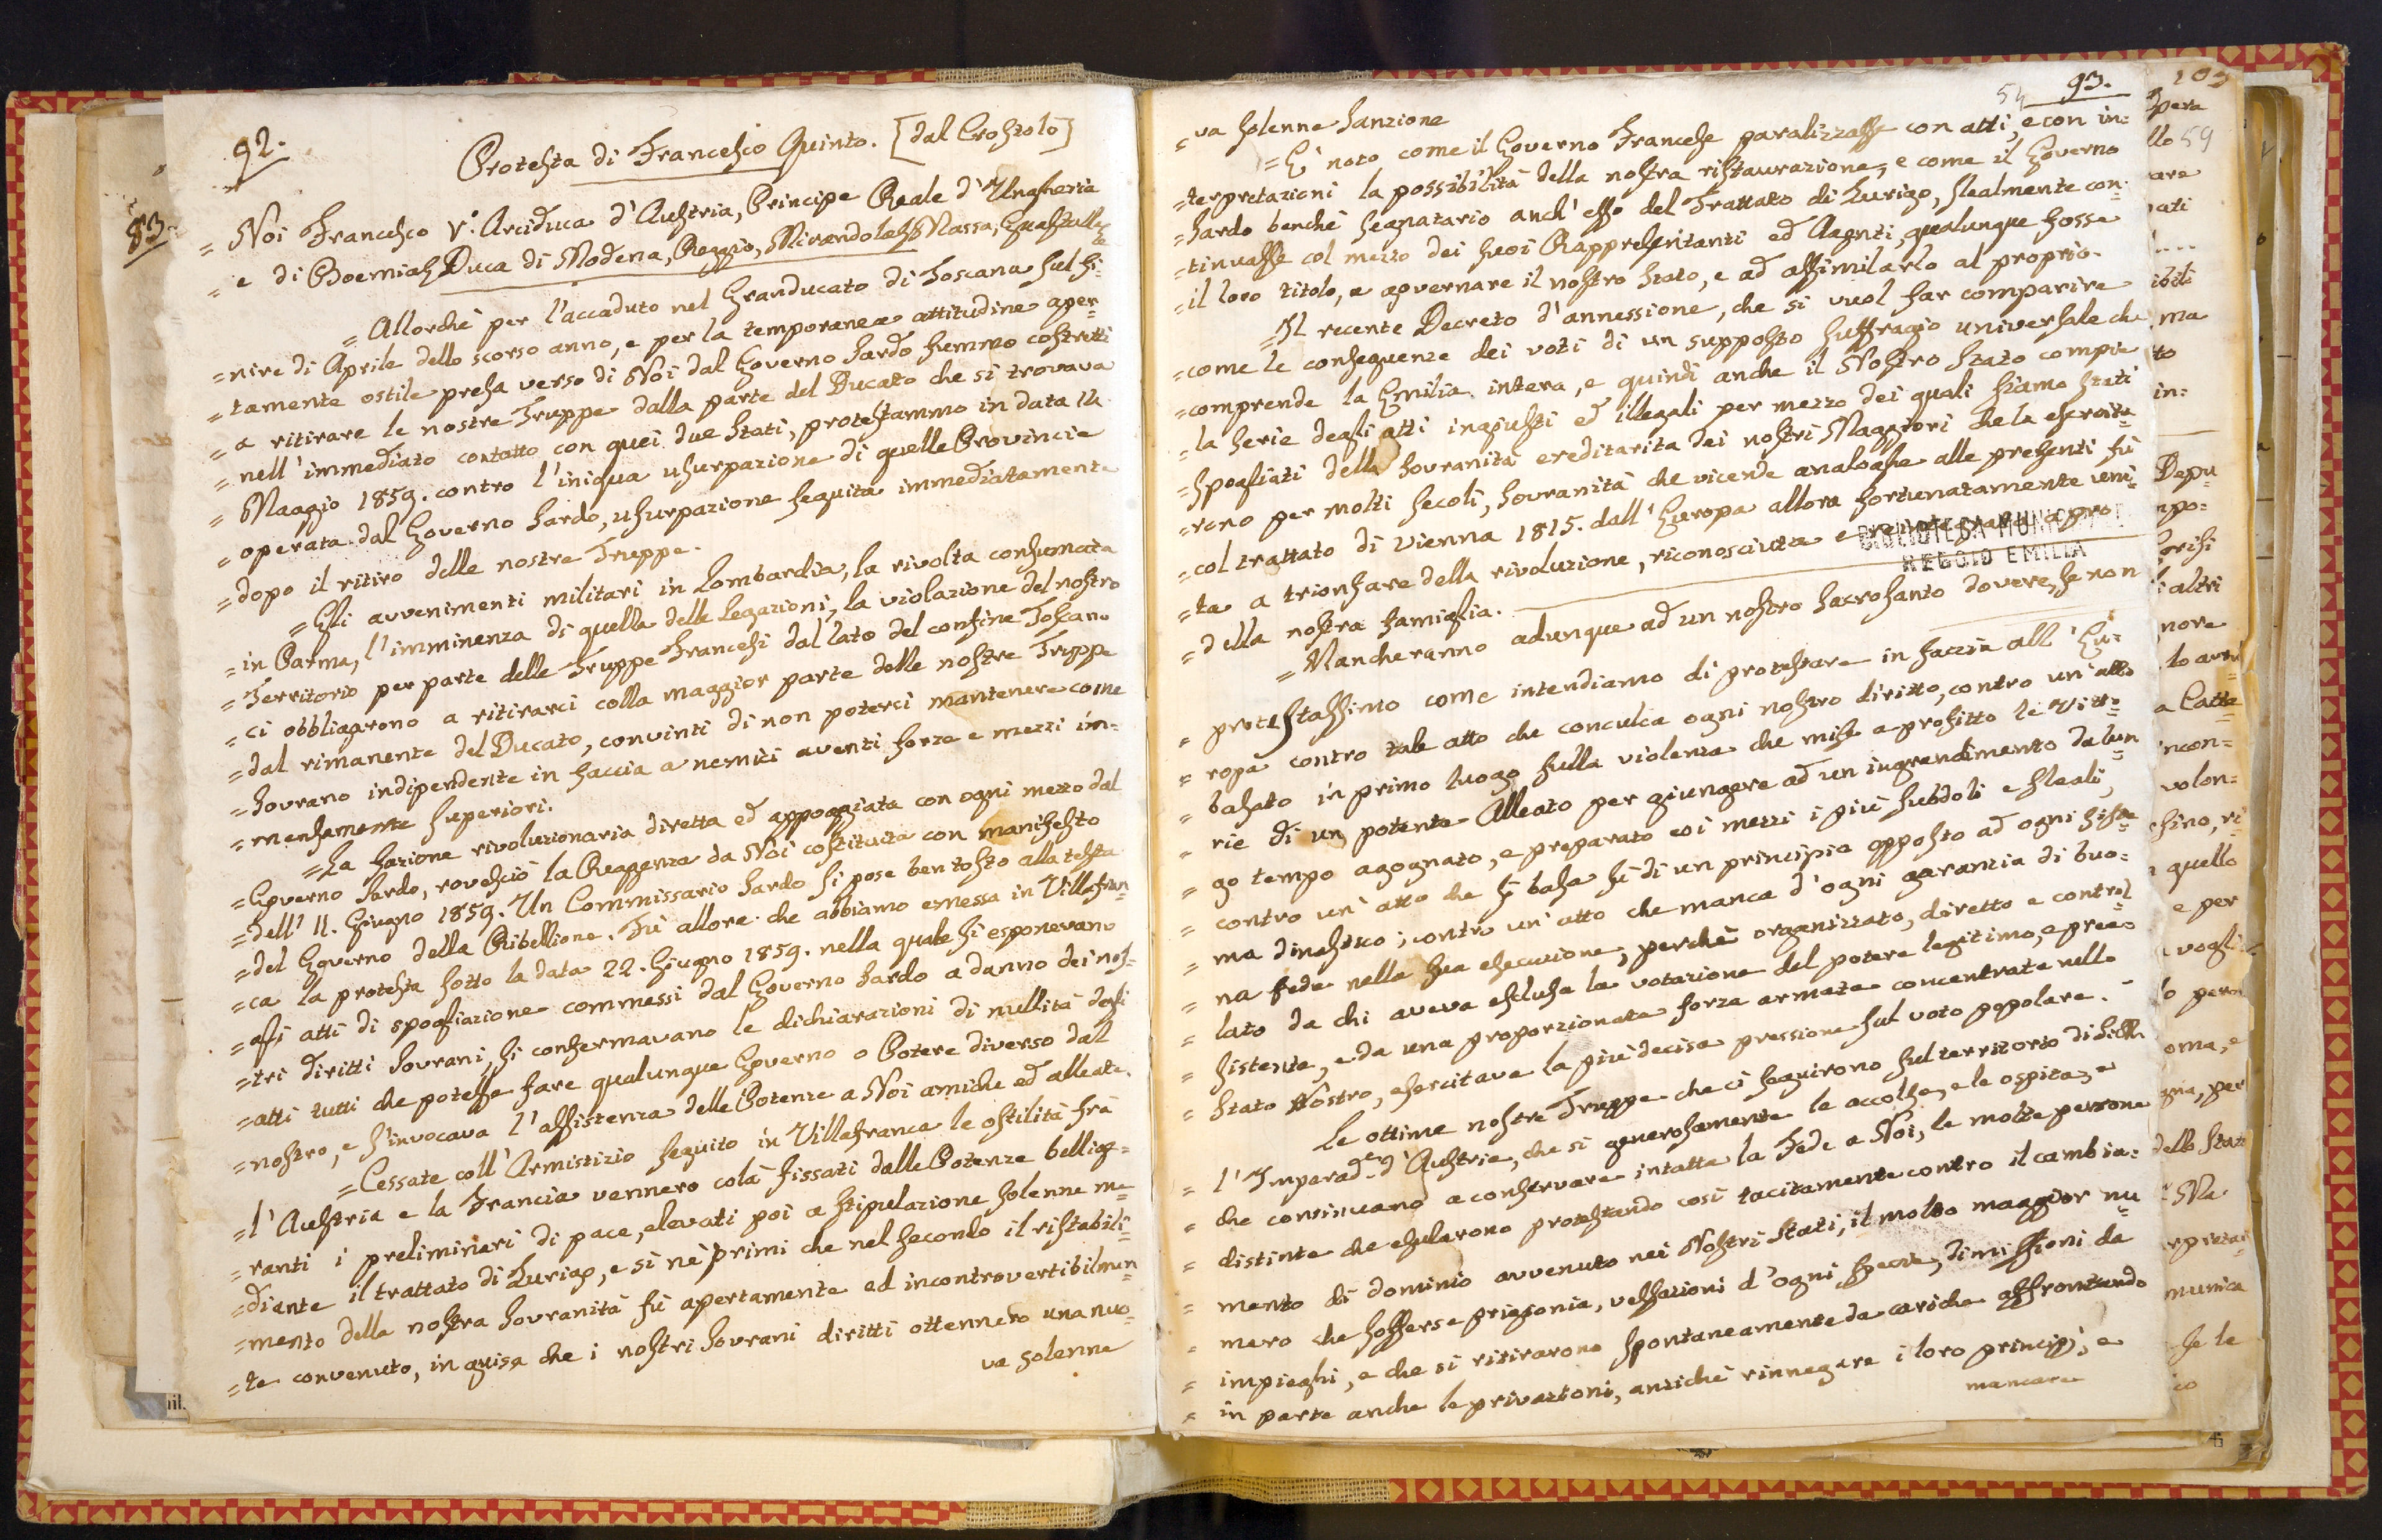 92.
Protesta di Francesco Quinto. [dal Crostolo]
83.
= Noi Francesco V.° Arciduca d'Austria, Principe Reale d'Ungheria
= e di Boemia; Duca di Modena, Reggio, Mirandola, Massa, Guastalla
= Allorchè per l'accaduto nel Granducato di Toscana sul fi-
=nire di Aprile dello scorso anno, e per la temporanea attitudine aper=
= tamente ostile presa verso di Noi dal Governo Sardo fummo costretti
= a ritirare le nostre Truppe dalla parte del Ducato che si trovava
= nell'immediato contatto con quei due Stati, protestammo in data 14
= Maggio 1859. contro l'iniqua usurpazione di quelle Provincie
= operata dal Governo Sardo, usurpazione seguita immediatamente
= dopo il ritiro delle nostre Truppe.
= Gli avvenimenti militari in Lombardia, la rivolta consumata
= in Parma, l'imminenza di quella delle Legazioni, la violazione del nostro
= Territorio per parte delle Truppe Francesi dal lato del confine Toscano
= ci obbligarono a ritirarci colla maggior parte delle nostre Truppe
= dal rimanente del Ducato, convinti di non poterci mantenere come
= Sovrano indipendente in faccia a nemici aventi forze e mezzi im=
= mensamente superiori.
= La fazione rivoluzionaria diretta ed appoggiata con ogni mezzo dal
= Governo Sardo, rovesciò la Reggenza da Noi costituita con manifesto
= dell' 11. Giugno 1859. Un Commissario Sardo si pose bentosto alla testa
= del Governo della Ribellione. Fù allora che abbiamo emessa in Villafran=
= ca la protesta sotto la data 22. Giugno 1859. nella quale si esponevano
= gli atti di spogliazione commessi dal Governo Sardo a danno dei nos-
= tri diritti Sovrani, si confermavano le dichiarazioni di nullità degli
= atti tutti che potesse fare qualunque Governo o Potere diverso dal
= nostro, e s'invocava l'assistenza delle Potenze a Noi amiche ed alleate.
= Cessate coll'Armistizio seguito in Villafranca le ostilità frà
= l'Austria e la Francia vennero colà fissati dalle Potenze bellige=
= ranti i preliminari di pace, elevati poi a stipulazione solenne me=
= diante il trattato di Zurigo, e sì nè primi che nel secondo il ristabili=
= mento della nostra Sovranità fù apertamente ed incontrovertibilmen=
= te convenuto, in guisa che i nostri Sovrani diritti ottennero una nuo=
va solenne
54 93.
= va solenne sanzione
= E' noto come il Governo Francese paralizzasse con atti, e con in=
= terpretazioni la possibilità della nostra ristaurazione, e come il Governo
= Sardo benchè segnatario anch'esso del Trattato di Zurigo, slealmente con=
= tinuasse col mezzo dei suoi Rappresentanti ed Agenti, qualunque fosse
= il loro titolo, a governare il nostro Stato, e ad assimilarlo al proprio.
= Il recente Decreto d'annessione, che si vuol far comparire
= come le conseguenze dei voti di un supposto suffragio universale che
= comprende la Emilia intera, e quindi anche il Nostro Stato compie
= la serie degli atti ingiusti ed illegali per mezzo dei quali siamo stati
= spogliati della sovranità ereditarita dai nostri Maggiori che la esercita=
= rono per molti secoli, sovranità che vicende analoghe alle presenti fù
= col trattato di Vienna 1815. dall'Europa allora fortunatamente uni=
= ta a trionfare della rivoluzione, riconosciuta e a pro
= della nostra famiglia.
BIBLIOTECA MUNICIPALE
REGGIO EMILIA
= Mancheranno adunque ad un nostro sacrosanto dovere, se non
= protestassimo come intendiamo di protestare in faccia all'Eu=
= ropa contro tale atto che conculca ogni nostro diritto, contro un'atto
= basato in primo luogo sulla violenza che mise a profitto le Vitto=
= rie di un potente Alleato per giungere ad un ingrandimento da lun=
= go tempo agognato, e preparato coi mezzi i più subdoli e sleali,
= contro un'atto che si basa sù di un principio opposto ad ogni siste=
= ma dinastico; contro un'atto che manca d'ogni garanzia di buo=
= na fede nella sua esecuzione, perchè organizzato, diretto e control=
= lato da chi aveva esclusa la votazione del potere legitimo, e pree=
= sistente, e da una proporzionata forza armata concentrata nello
= Stato Nostro, esercitava la più decisa pressione sul voto popolare.
Le ottime nostre Truppe che ci seguirono sul territorio di
= l'Imperad.e d'Austria, che si generosamente le accolse, e le ospita, e
= che continuano a conservare intatta la Fede a Noi, le molte persone
= distinte che esularono protestando così tacitamente contro il cambia=
= mento di dominio avvenuto nei Nostri Stati, il molto maggior nu=
= mero che sofferse prigionia, vessazioni d'ogni specie, dimissioni da
= impieghi, e che si ritirarono spontaneamente da cariche affrontando
= in parte anche le privazioni, anzichè rinnegare i loro principj, e
mancare
103
59